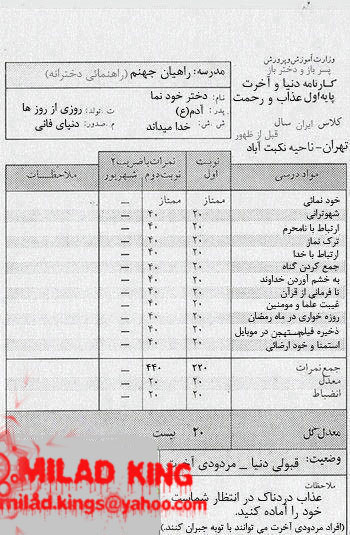 وزارت آموزش و پرورش
پسر باز و دختر باز
کارنامه دنیا و آخرت
پایه اول عذاب و رحمت
کلاس ایران سال
قبل از ظهور
تهران - ناحیه نکبت آباد
مدرسه: راهیان جهنم (راهنمائی دخترانه)
نام: دختر خود نما
پدر: آدم(ع) ت. تولد: روزی از روز ها
ش. ش: خدا میداند م. صدور: دنیای فانی
مواد درسی نوبت اول نمرات با ضریب ۲ نوبت دوم شهریور ملاحظات
خود نمائی ممتاز ممتاز —
شهوترانی ۲۰ ۴۰ —
ارتباط با نامحرم ۲۰ ۴۰ —
ترک نماز ۲۰ ۴۰ —
ارتباط با خدا ۲۰ ۴۰ —
جمع کردن گناه ۲۰ ۴۰ —
به خشم آوردن خداوند ۲۰ ۴۰ —
نا فرمانی از قرآن ۲۰ ۴۰ —
غیبت علما و مومنین ۲۰ ۴۰ —
روزه خواری در ماه رمضان ۲۰ ۴۰ —
ذخیره فیلم مستهجن در موبایل ۲۰ ۴۰ —
استمنا و خود ارضائی ۲۰ ۴۰ —
جمع نمرات ۲۲۰ ۴۴۰ —
معدل ۲۰ ۲۰ —
انضباط ۲۰ ۲۰ —
معدل کل ۲۰ بیست
وضعیت: قبولی دنیا _ مردودی آخرت
ملاحظات
عذاب دردناک در انتظار شماست
خود را آماده کنید.
(افراد مردودی آخرت می توانند با توبه جبران کنند.)
MILAD KING
milad.kings@yahoo.com